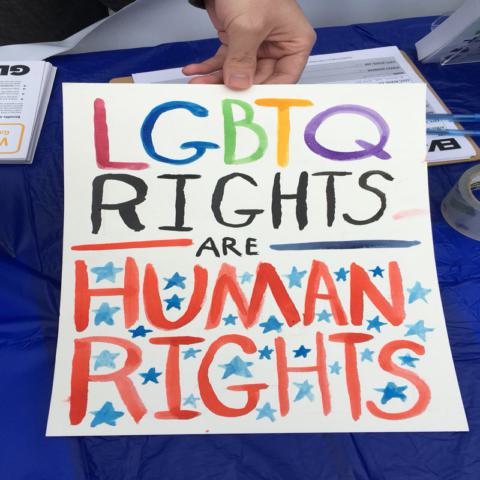 LGBTQ
RIGHTS
ARE
HUMAN
RIGHTS